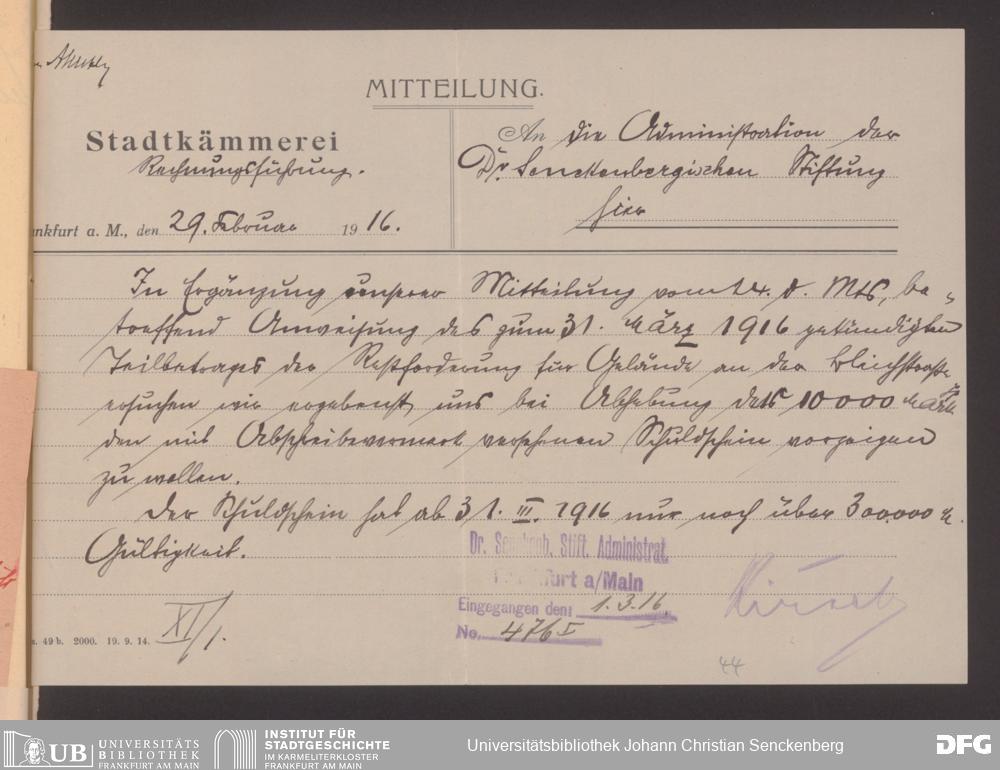 MITTEILUNG.
Stadtkämmerei
Rechnungsführung.
An die Administration der
Dr. Senckenbergischen Stiftung
hier
nkfurt a. M., den 29. Februar 1916.
In Ergänzung unserer Mitteilung vom 24. d. Mts., be-
treffend Anweisung des zum 31. März 1916 gekündigten
Teilbetrages der Restforderung für Gelände an der Bleichstraße
ersuchen wir ergebenst, uns bei Abhebung der 10000 Mark
den mit Abschreibevermerk versehenen Schuldschein vorzeigen
zu wollen.
Der Schuldschein hat ab 31. III. 1916 nur noch über 300.000 M.
Gültigkeit.
Dr. Senckenb. Stift. Administrat.
Frankfurt a/Main
Eingegangen den: 1.3.16
No. 476 I
XI/1.
49 b. 2000. 19. 9. 14.
44
UB UNIVERSITÄTS
BIBLIOTHEK
FRANKFURT AM MAIN
INSTITUT FÜR
STADTGESCHICHTE
IM KARMELITERKLOSTER
FRANKFURT AM MAIN
Universitätsbibliothek Johann Christian Senckenberg
DFG